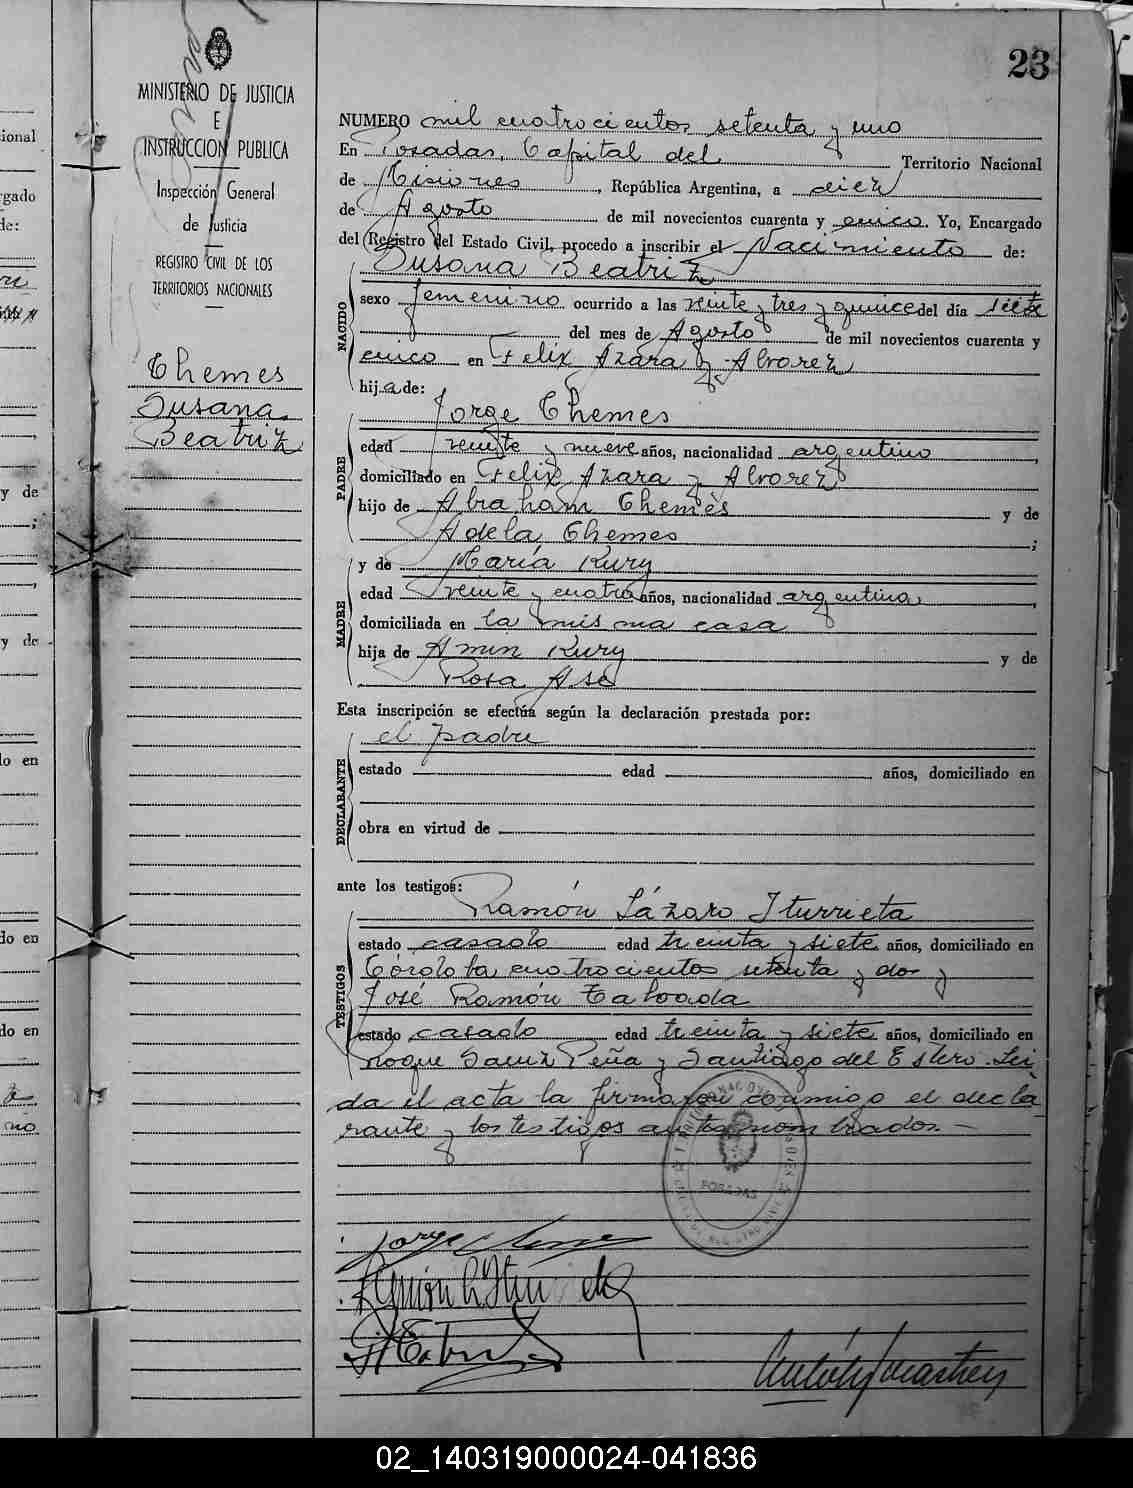 23
MINISTERIO DE JUSTICIA
E
INSTRUCCION PUBLICA
Inspección General
de Justicia
REGISTRO CIVIL DE LOS
TERRITORIOS NACIONALES
Themes
Susana
Beatriz
NUMERO mil cuatrocientos setenta y uno
En Posadas, Capital del Territorio Nacional
de Misiones, República Argentina, a diez
de Agosto de mil novecientos cuarenta y cinco. Yo, Encargado
del Registro del Estado Civil, procedo a inscribir el Nacimiento de:
Susana Beatriz
NACIDO
sexo femenino ocurrido a las veinte y tres y quince del día siete
del mes de Agosto de mil novecientos cuarenta y
cinco en Felix Azara y Alvarez
hija de:
Jorge Themes
PADRE
edad veinte y nueve años, nacionalidad argentino,
domiciliado en Felix Azara y Alvarez
hijo de Abraham Themes y de
Adela Themes;
y de María Kury
MADRE
edad veinte y cuatro años, nacionalidad argentina,
domiciliada en la misma casa
hija de Amin Kury y de
Rosa Ase
Esta inscripción se efectúa según la declaración prestada por:
el padre
DECLARANTE
estado edad años, domiciliado en
obra en virtud de
ante los testigos:
Ramón Lázaro Iturrieta
TESTIGOS
estado casado edad treinta y siete años, domiciliado en
Córdoba cuatrocientos setenta y dos y
José Ramón Taboada
estado casado edad treinta y siete años, domiciliado en
Roque Saenz Peña y Santiago del Estero. Leí
da el acta la firmaron conmigo el decla
rante y los testigos antes nombrados. —
POSADAS
Jorge Themes
Ramón L Iturrieta
02_140319000024-041836